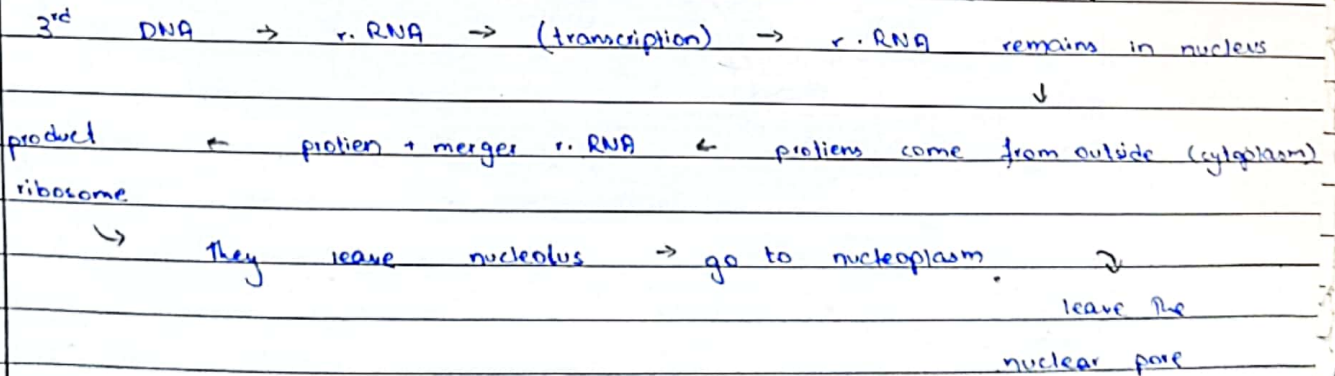 3rd DNA → r.RNA → (transcription) → r.RNA remains in nucleus
↓
product ← protien + merges r.RNA ← protiens come from outside (cytoplasm)
ribosome
↳ They leave nucleolus → go to nucleoplasm. ↷
leave the
nuclear pore